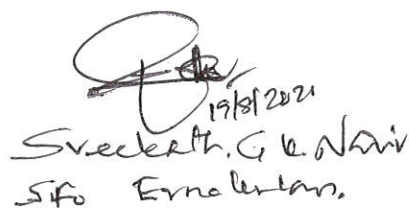 19/8/2021
Sreekanth. G k Nair
SFO Ernakulam.